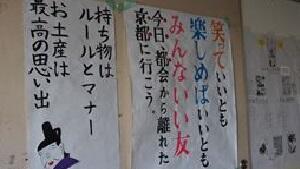 笑っていいとも
楽しめばいいとも
みんないい友
今日、都会から離れた
京都に行こう。
持ち物は
ルールとマナー
お土産は
最高の思い出